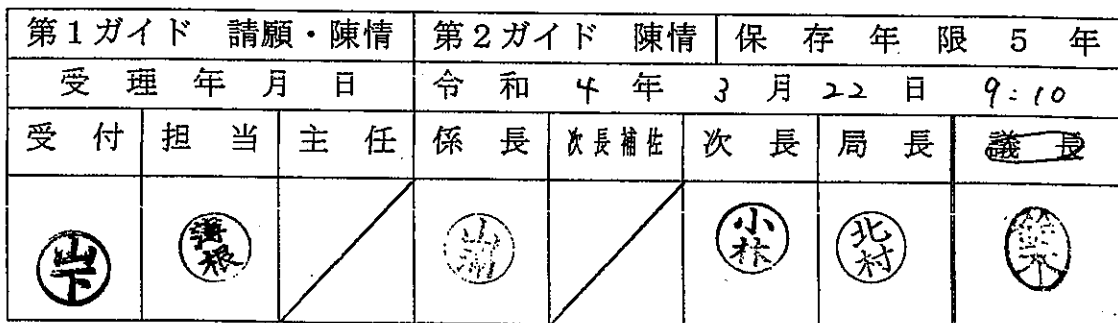 第1ガイド 請願・陳情 第2ガイド 陳情 保存年限5年
受理年月日 令和4年3月22日 9:10
受付 担当 主任 係長 次長補佐 次長 局長 議長
山下 小林 北村